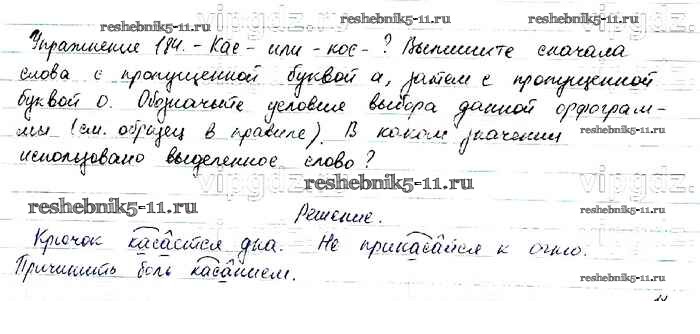 reshebnik5-11.ru
reshebnik5-11.ru
Упражнение 184. - Кас - или - кос - ? Выпишите сначала
слова с пропущенной буквой а, затем с пропущенной
буквой о. Обозначьте условие выбора данной орфограм-
мы (см. образец в правиле). В каком значении
использовано выделенное слово?
vipgdz
vipgdz
reshebnik5-11.ru
reshebnik5-11.ru
reshebnik5-11.ru
Решение.
Крючок касается дна. Не прикасайся к огню.
Причинить боль касанием.
reshebnik5-11.ru
reshebnik5-11.ru